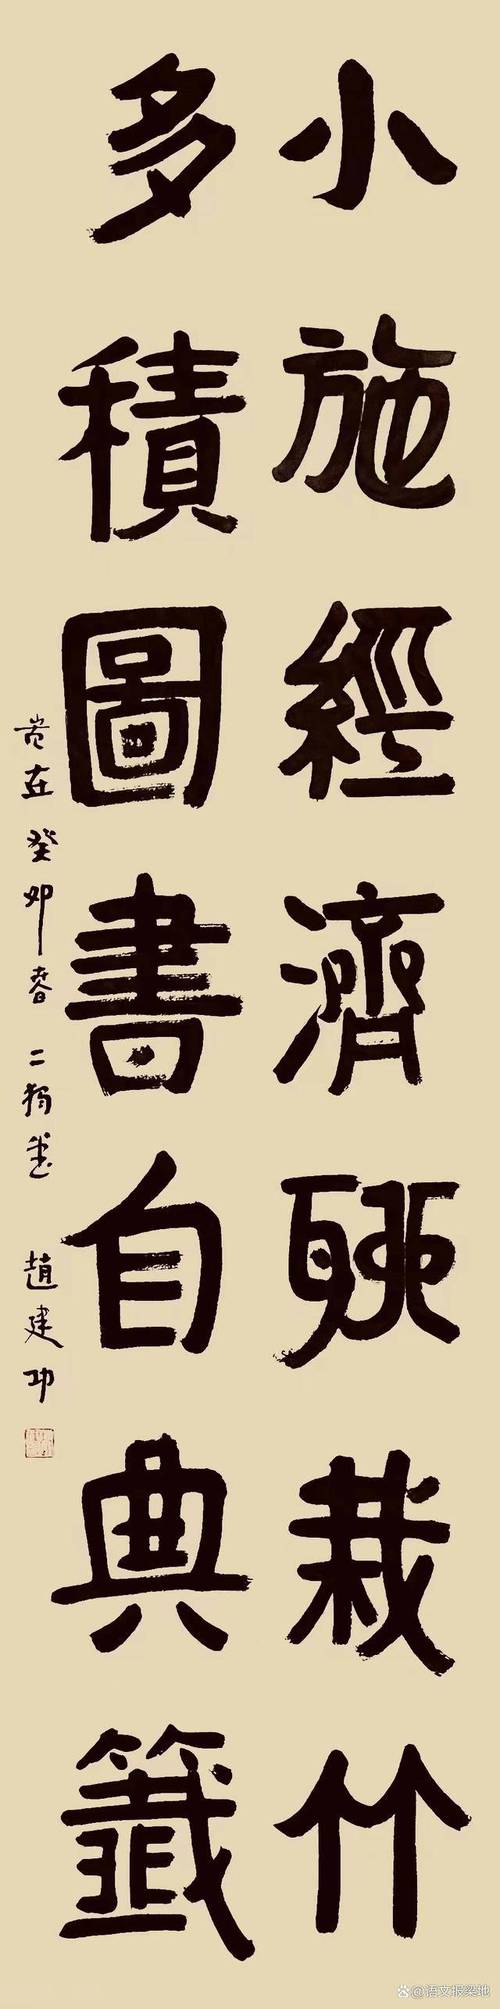 小施經濟聊栽竹
多積圖書自典籤
岁在癸卯春二 趙建功
@语文报梁地